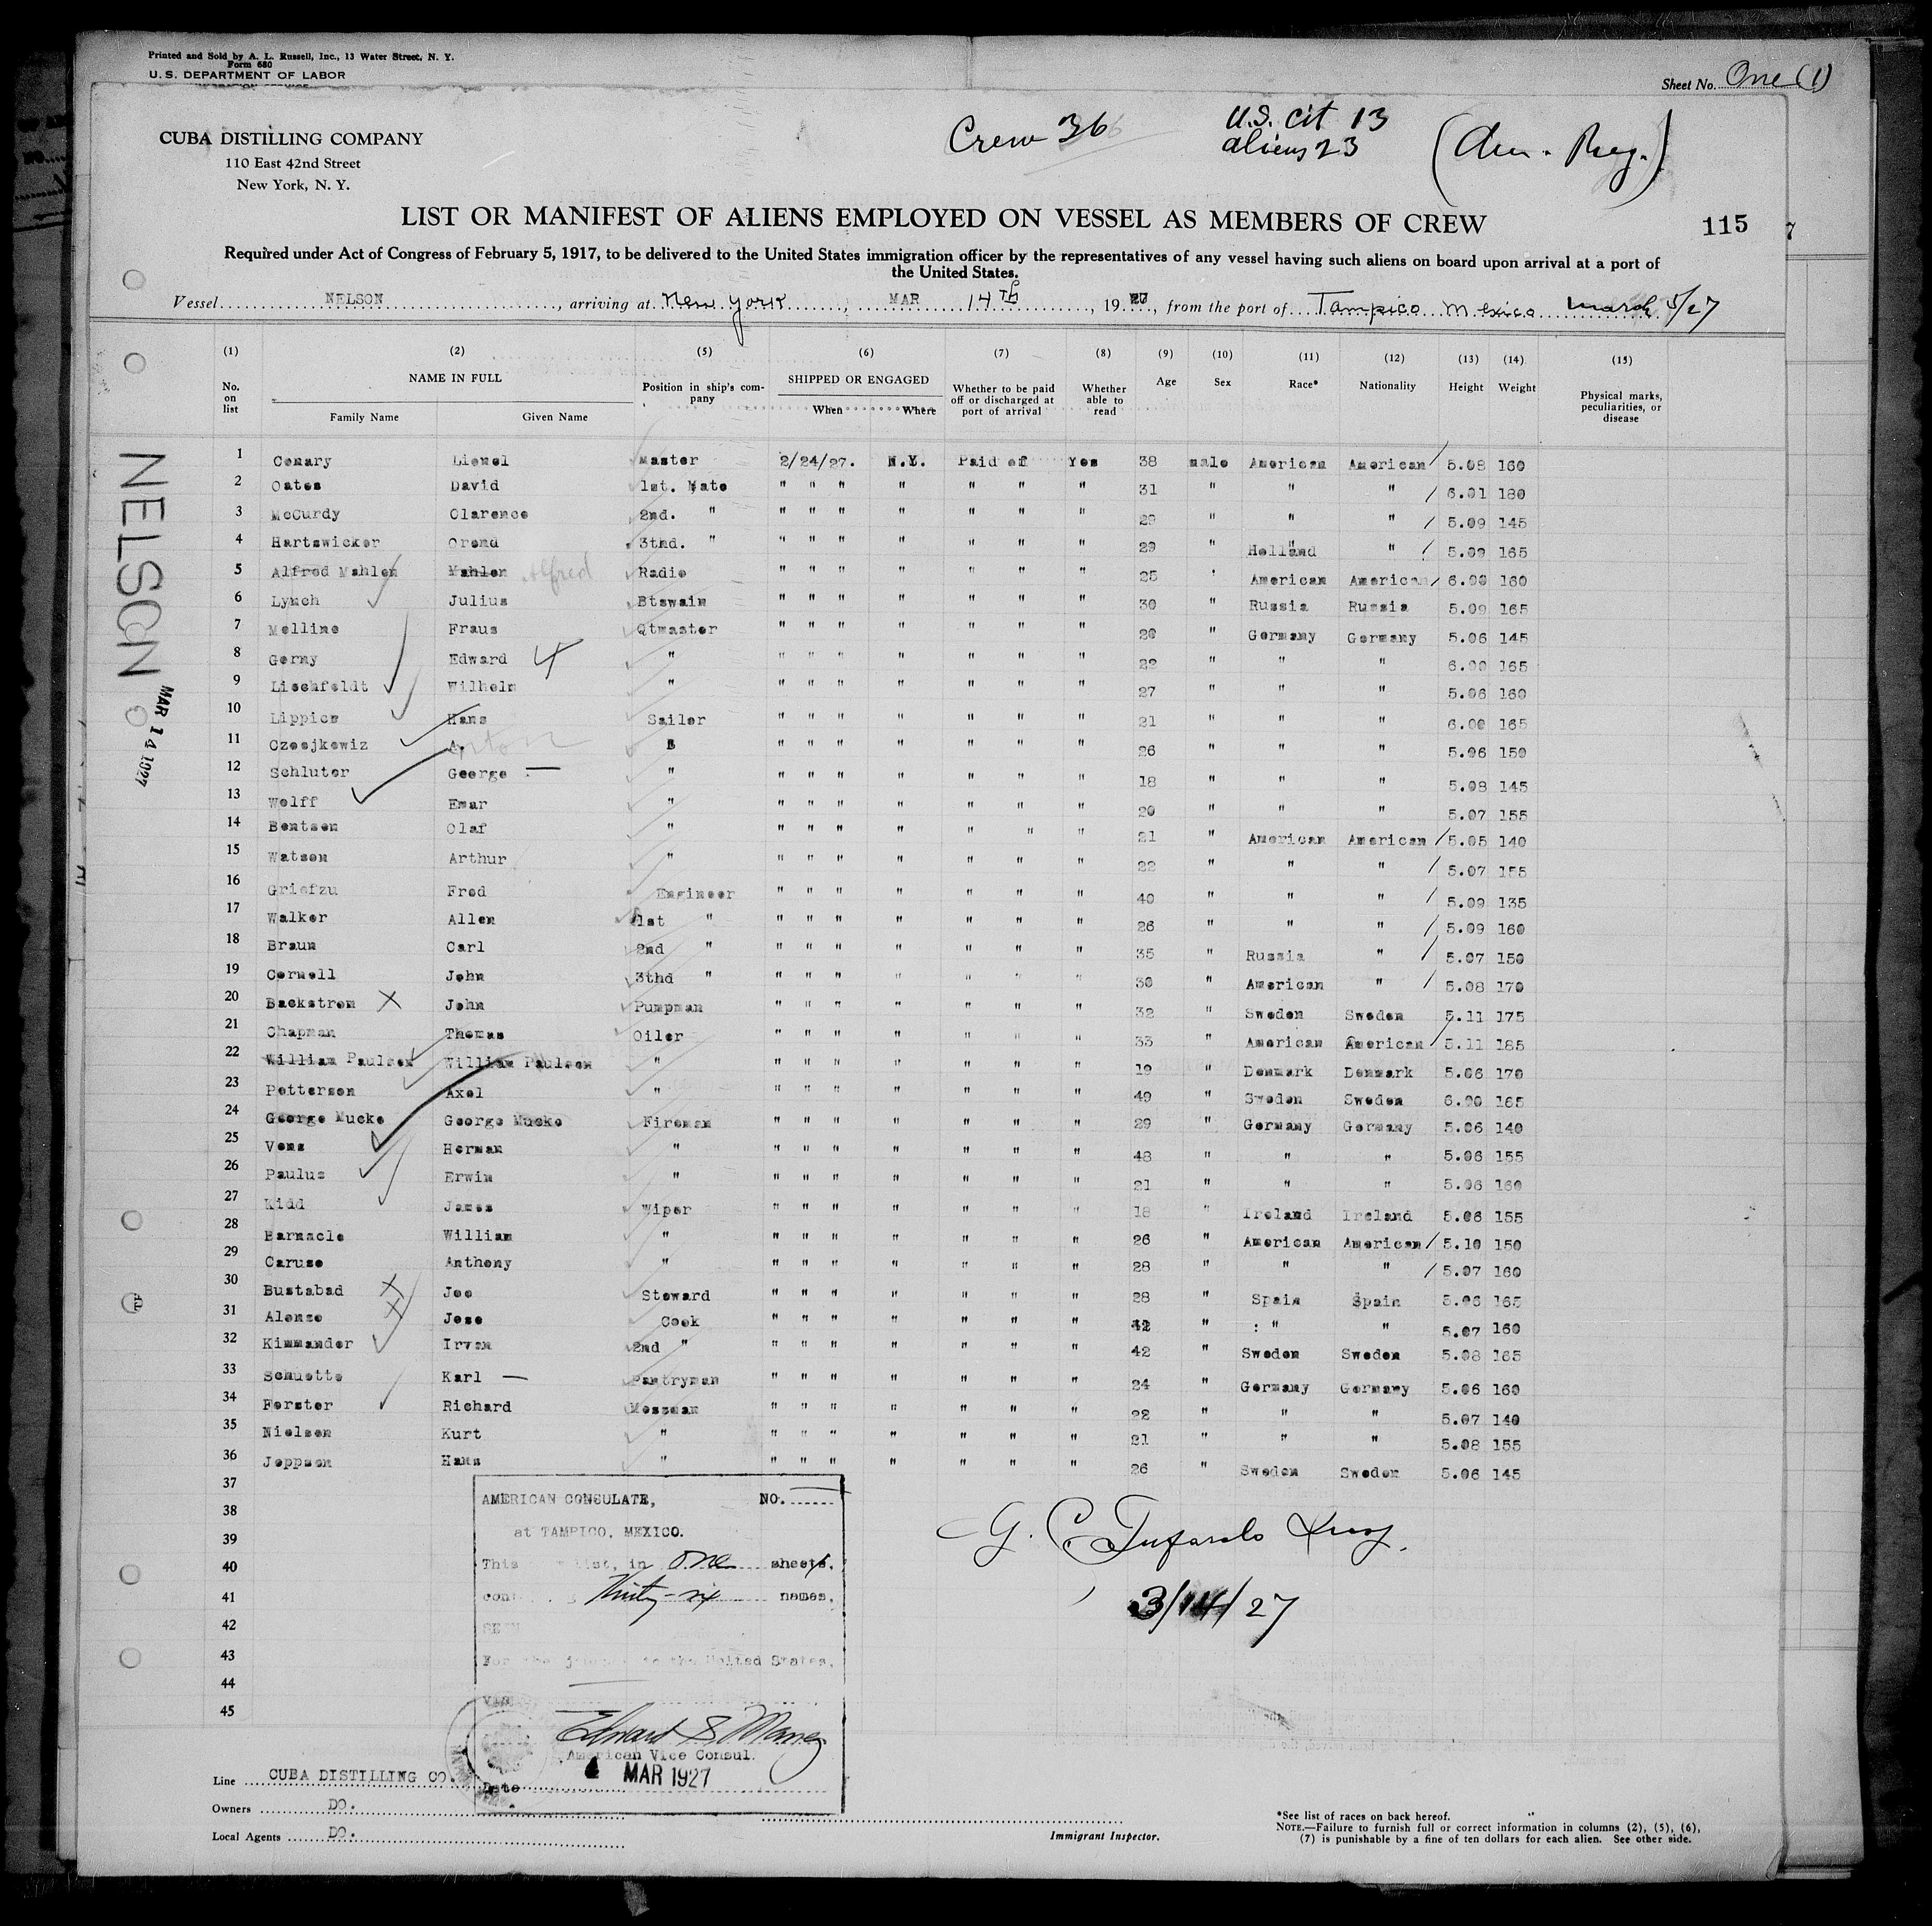 Printed and Sold by A. L. Russell, Inc., 13 Water Street, N. Y.
Form 680
U. S. DEPARTMENT OF LABOR
Sheet No. One (1)
CUBA DISTILLING COMPANY
110 East 42nd Street
New York, N. Y.
Crew 36
U.S. cit 13
aliens 23
(Am. Reg.)
LIST OR MANIFEST OF ALIENS EMPLOYED ON VESSEL AS MEMBERS OF CREW
115
Required under Act of Congress of February 5, 1917, to be delivered to the United States immigration officer by the representatives of any vessel having such aliens on board upon arrival at a port of
the United States.
Vessel NELSON, arriving at New York, MAR 14th, 1927, from the port of Tampico Mexico march 5/27
(1) (2) (5) (6) (7) (8) (9) (10) (11) (12) (13) (14) (15)
No. on list
NAME IN FULL
Family Name Given Name
Position in ship's company
SHIPPED OR ENGAGED
When Where
Whether to be paid off or discharged at port of arrival
Whether able to read
Age Sex Race* Nationality Height Weight
Physical marks, peculiarities, or disease
1 Conary Lionel Master 2/24/27. N.Y. Paid of Yes 38 male American American 5.08 160
2 Oates David 1st. Mate " " " " " " " 31 " " " 6.01 180
3 McCurdy Clarence 2nd. " " " " " " " " 29 " " " 5.09 145
4 Hartswicker Orend 3thd. " " " " " " " " 29 " Holland " 5.09 165
5 Alfred Mahlen Mahlen Alfred Radio " " " " " " " 25 ' American American 6.00 160
6 Lynch Julius Btswain " " " " " " " 30 " Russia Russia 5.09 165
7 Melline Fraus Qtmaster " " " " " " " 20 " Germany Germany 5.06 145
8 Gerny Edward 4 " " " " " " " " 22 " " " 6.00 165
9 Lischfeldt Wilhelm " " " " " " " " 27 " " " 5.06 160
10 Lippics Hans Sailer " " " " " " " 21 " " " 6.00 165
11 Czesjkewiz A. Anton " " " " " " " 26 " " " 5.06 150
12 Schluter George — " " " " " " " " 18 " " " 5.08 145
13 Wolff Emar " " " " " " " " 20 " " " 5.07 155
14 Bentsen Olaf " " " " " " " " 21 " American American 5.05 140
15 Watson Arthur " " " " " " " " 22 " " " 5.07 155
16 Griefzu Fred Engineer " " " " " " " 40 " " " 5.09 135
17 Walker Allen 1st " " " " " " " " 26 " " " 5.09 160
18 Braun Carl 2nd " " " " " " " " 35 " Russia " 5.07 150
19 Cornell John 3thd " " " " " " " " 30 " American " 5.08 170
20 Backstrom X John Pumpman " " " " " " " 32 " Sweden Sweden 5.11 175
21 Chapman Thomas Oiler " " " " " " " 33 " American American 5.11 185
22 William Paulsen William Paulsen " " " " " " " " 19 " Denmark Denmark 5.06 170
23 Petterson Axel " " " " " " " " 49 " Sweden Sweden 6.00 165
24 George Mucke George Mucke Fireman " " " " " " " 29 " Germany Germany 5.06 140
25 Vens Herman " " " " " " " " 48 " " " 5.06 155
26 Paulus Erwin " " " " " " " " 21 " " " 5.06 160
27 Kidd James Wiper " " " " " " " 18 " Ireland Ireland 5.06 155
28 Barnacle William " " " " " " " " 26 " American American 5.10 150
29 Caruso Anthony " " " " " " " " 28 " " " 5.07 160
30 Bustabad X Joe Steward " " " " " " " 28 " Spain Spain 5.06 165
31 Alonso X Jose Cook " " " " " " " 42 " " " 5.07 160
32 Kimmander Irven 2nd " " " " " " " " 42 " Sweden Sweden 5.08 165
33 Schuette Karl — Pantryman " " " " " " " 24 " Germany Germany 5.06 160
34 Forster Richard Messman " " " " " " " 22 " " " 5.07 140
35 Nielsen Kurt " " " " " " " " 21 " " " 5.08 155
36 Jeppson Hans " " " " " " " " 26 " Sweden Sweden 5.06 145
37
38
39
40
41
42
43
44
45
NELSON
MAR 14 1927
AMERICAN CONSULATE, NO.
at TAMPICO, MEXICO.
This list, in one sheets,
thirty-six names.
For the to the United States,
Via
Edward S. Maney
American Vice Consul.
Date 4 MAR 1927
G. C.
3/14/27
Line CUBA DISTILLING CO.
Owners DO.
Local Agents DO.
Immigrant Inspector.
*See list of races on back hereof.
NOTE.—Failure to furnish full or correct information in columns (2), (5), (6),
(7) is punishable by a fine of ten dollars for each alien. See other side.